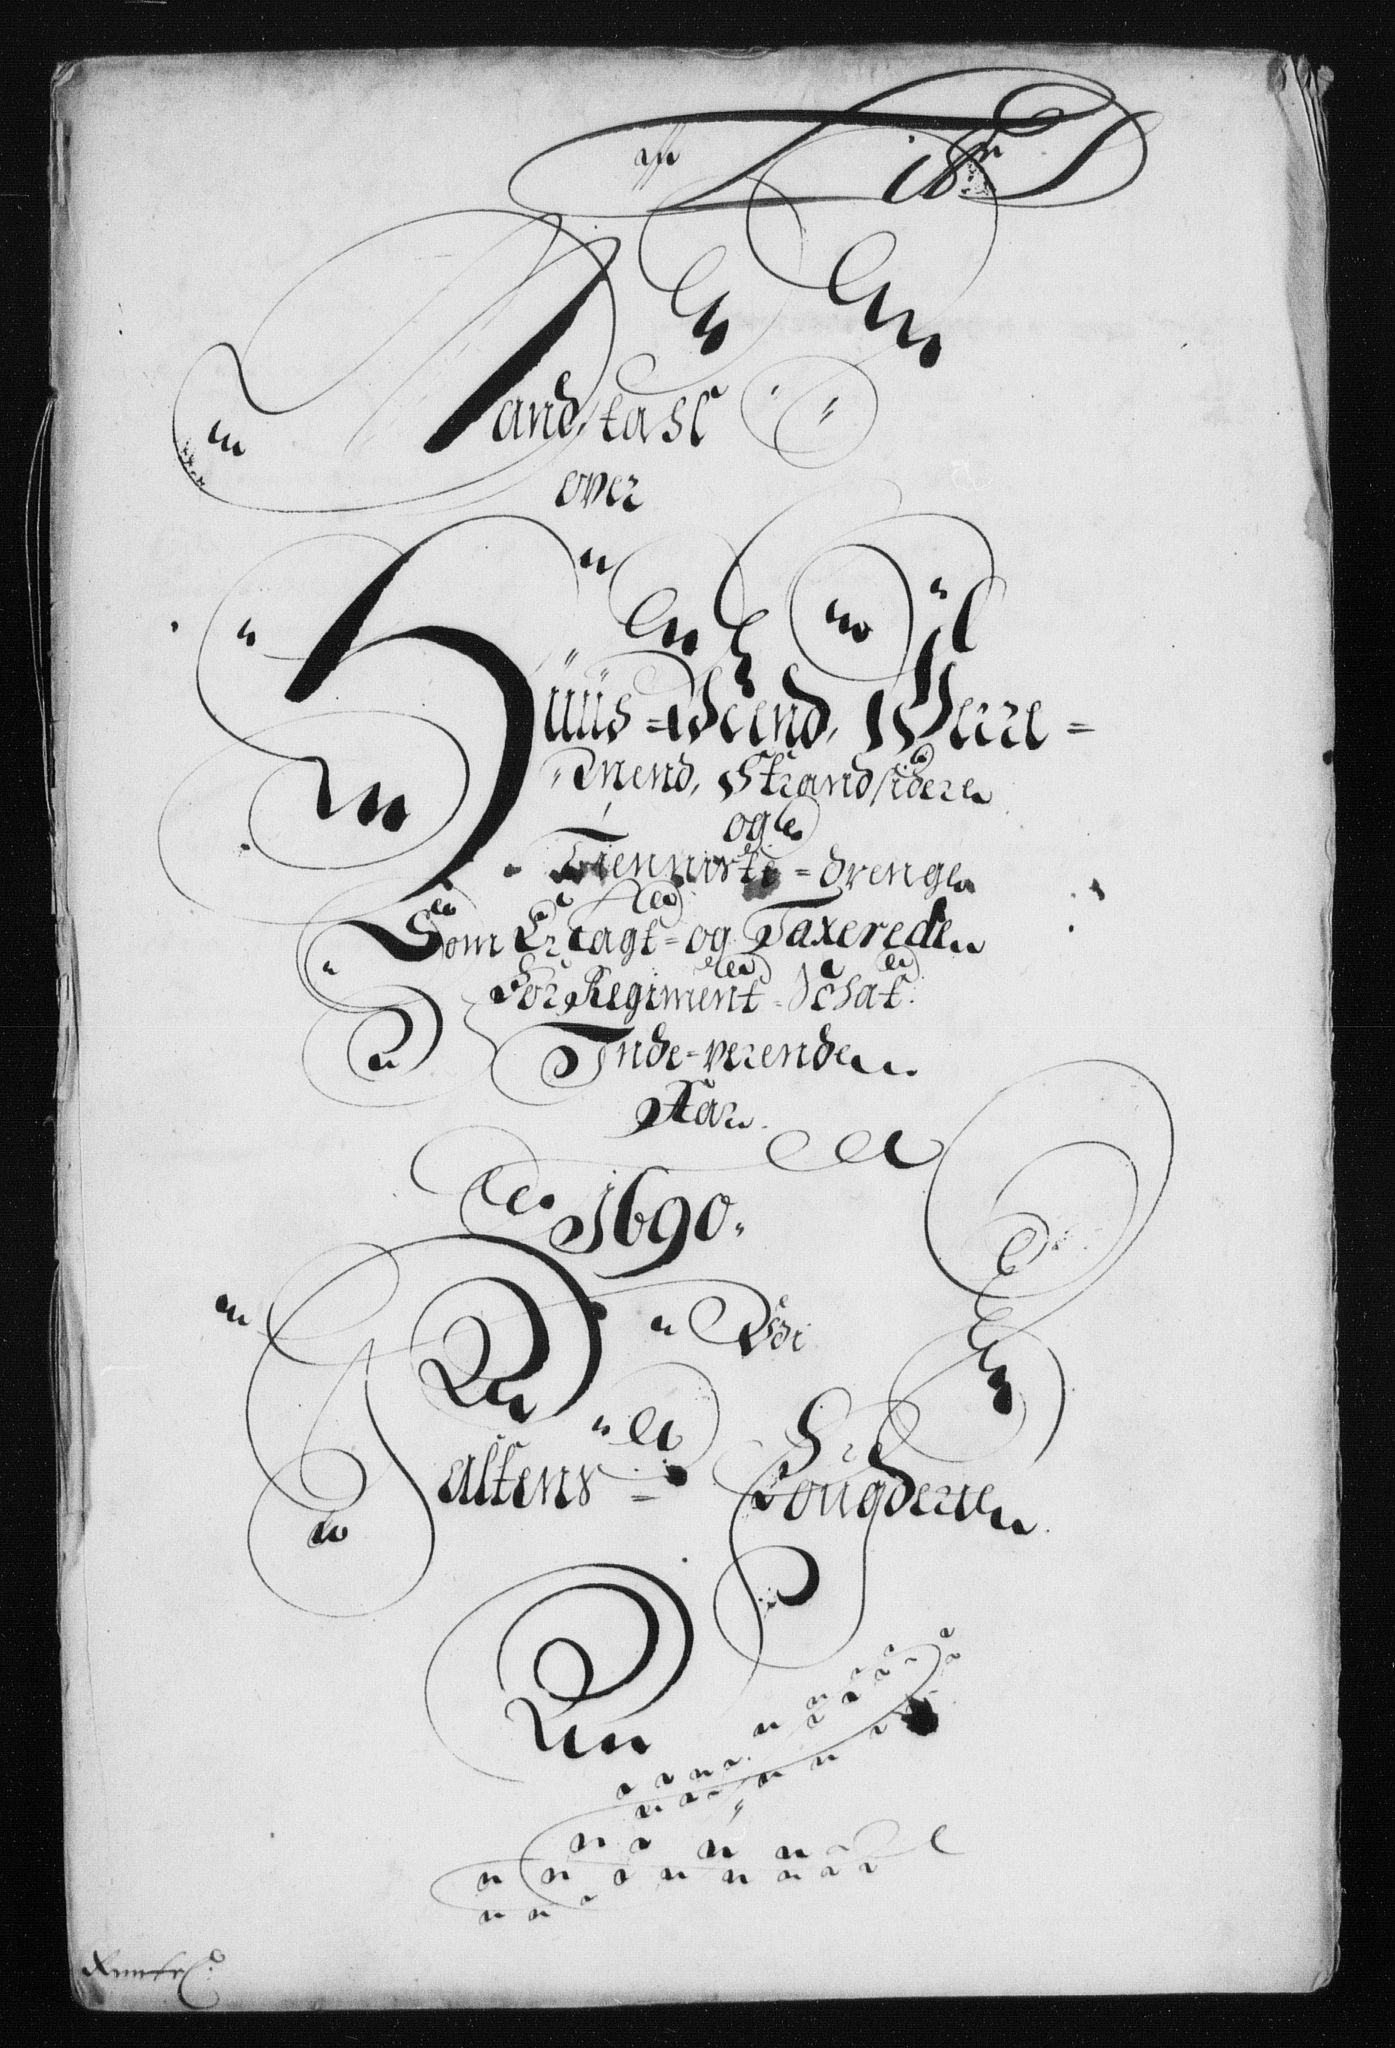 Lit: S
Mandtahl
over
Huus-Mend, Werre-
Mend, Strandsidere
og
Tienniste-drenge
Som Er lagt og Taxerede
For Regiment Schat
Inde-verende
Aar
1690.
Udi
Saltens Fougderie